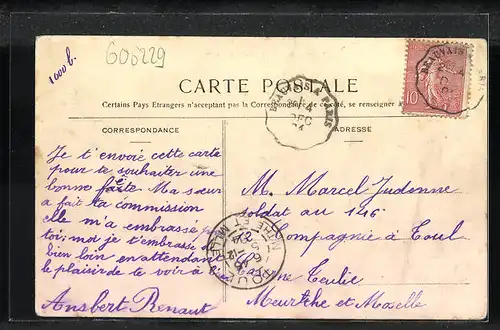 1000 b.
608229
CARTE POSTALE
Certains Pays Etrangers n'acceptant pas la Correspondance de ce côté, se renseigner à
CORRESPONDANCE
ADRESSE
Je t'envoie cette carte
pour te souhaiter une
bonne fête Ma sœur
a fait ta commission
elle m'a embrassé pour
toi; moi je t'embrasse
bien loin en attendant
le plaisir de te voir à
Ansbert Renaut
M. Marcel Judenne
soldat au 146
Compagnie à Toul
Meurthe et Moselle
BEAUVAIS À PARIS
DEC
BEAUVAIS
10